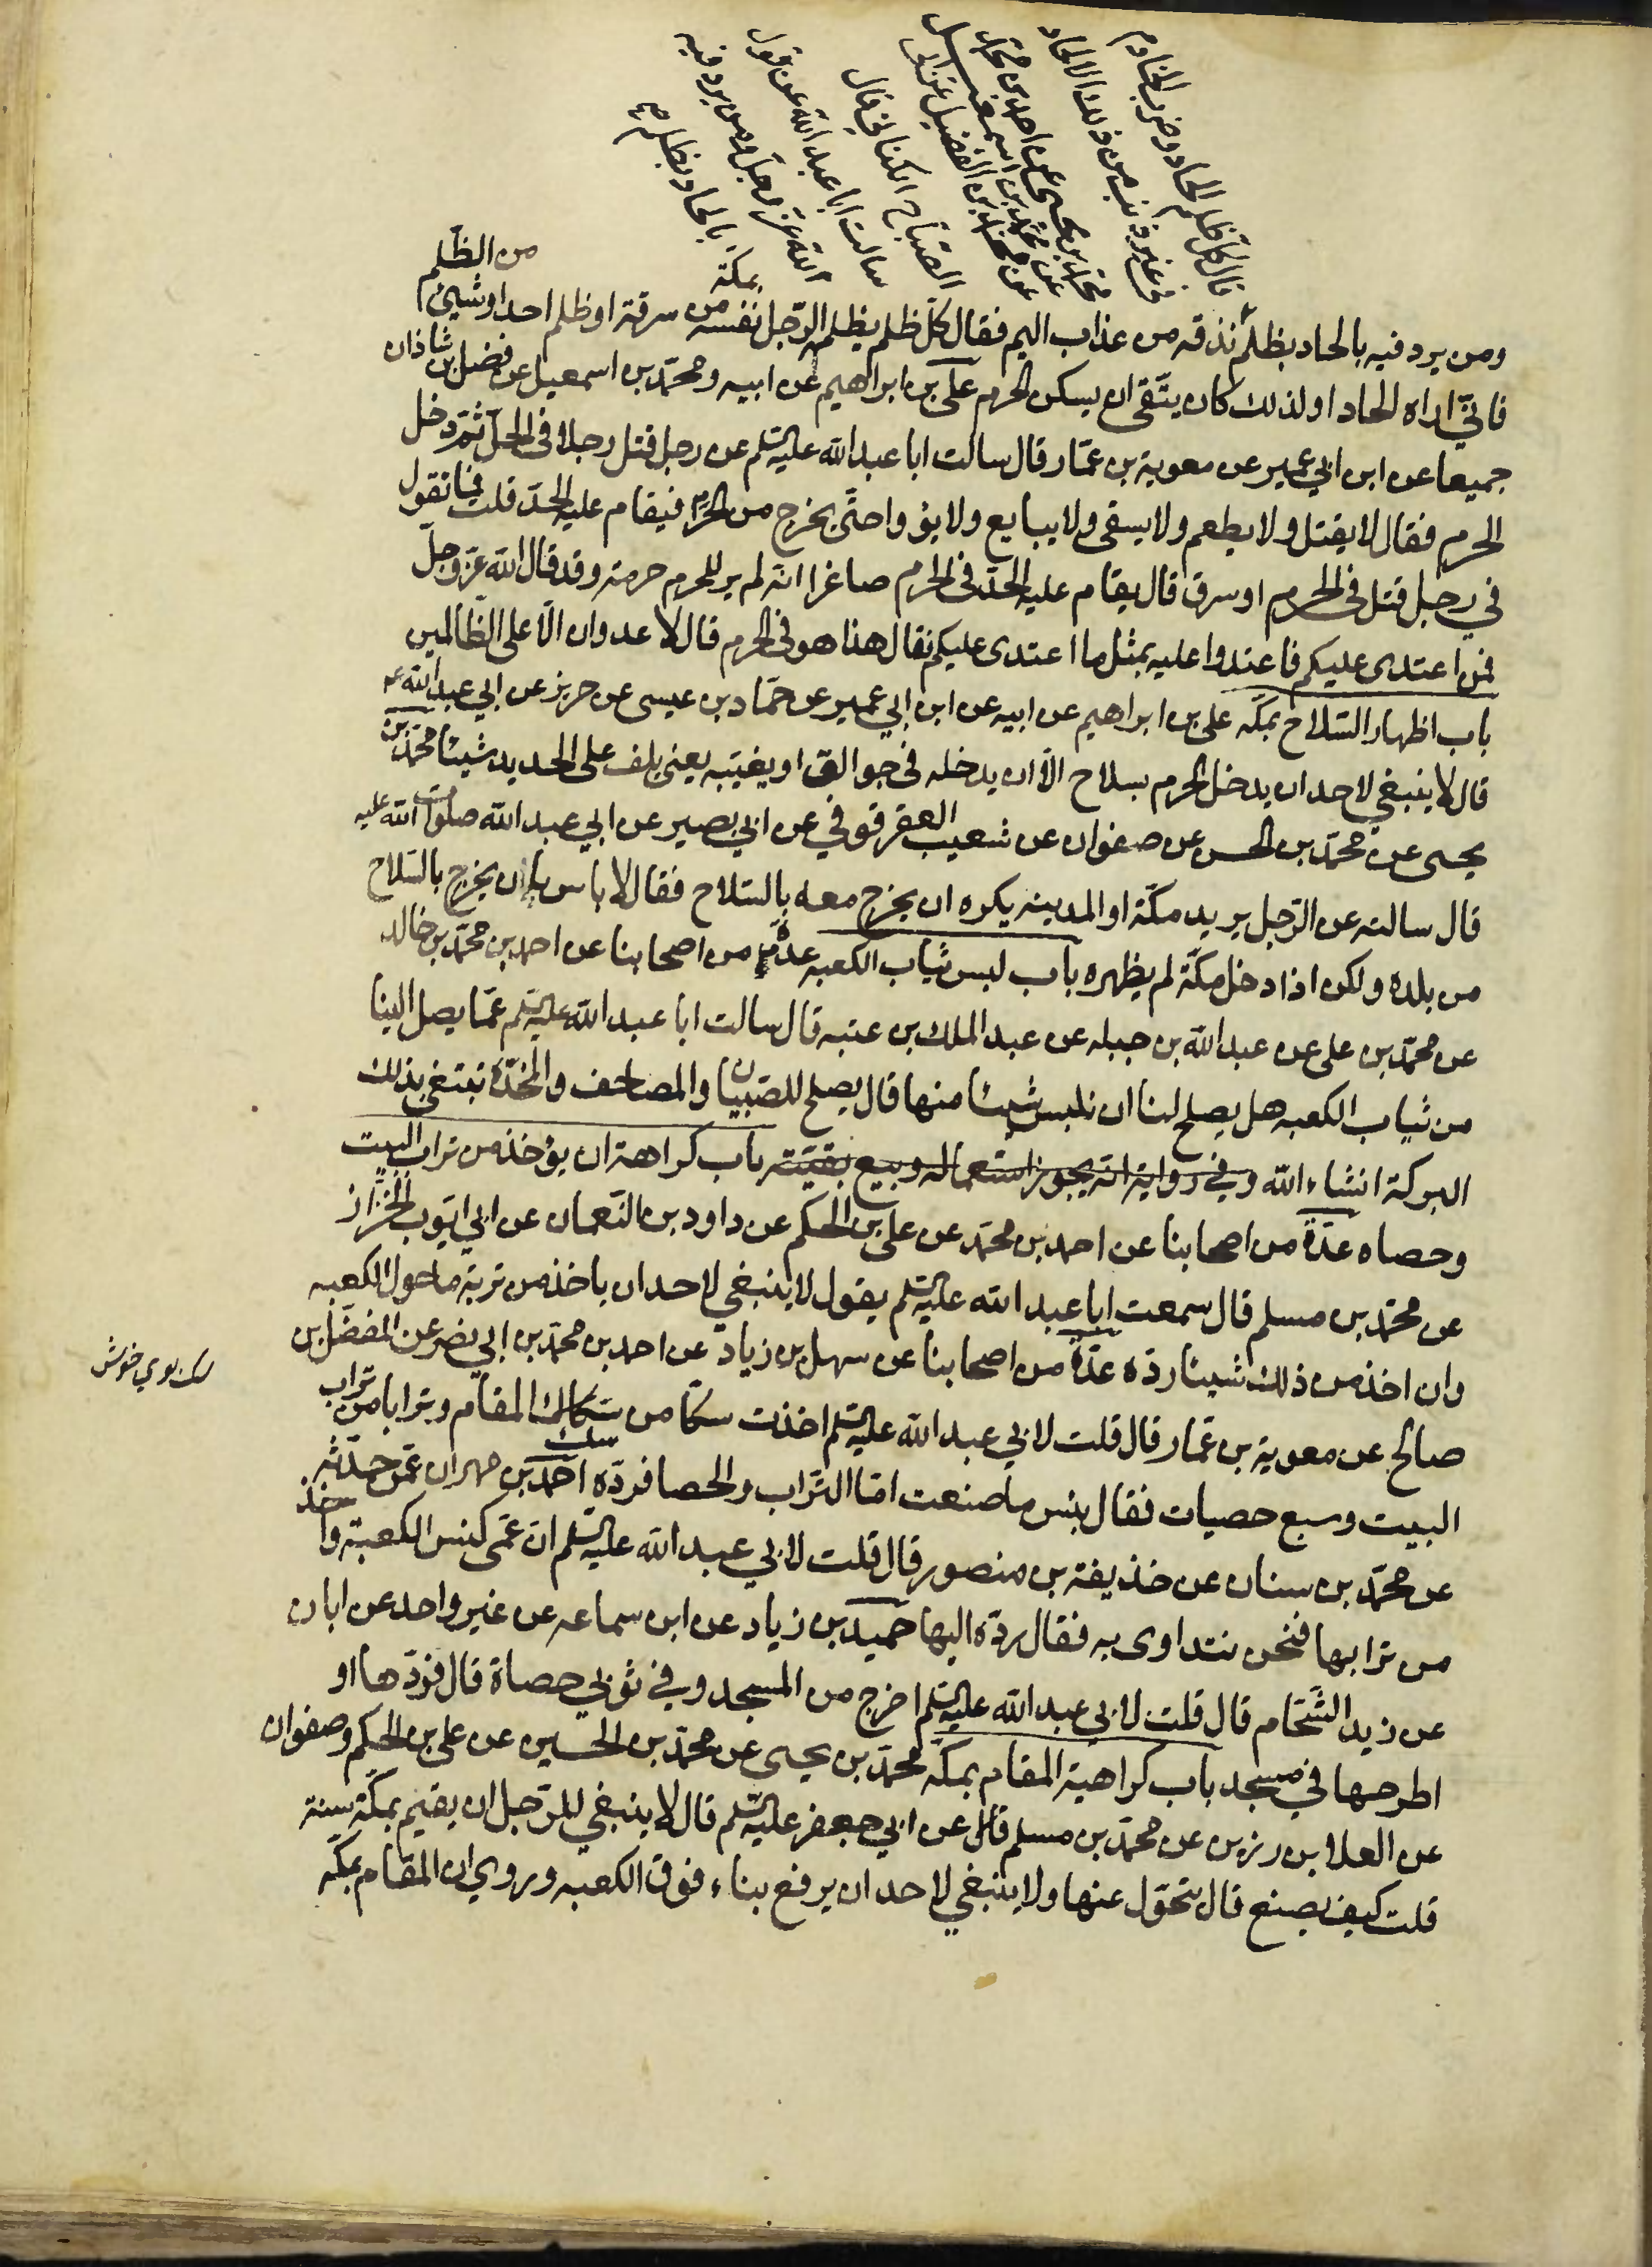 قال كل ظلم الحاد وضرب الخادم
في غير ذنب من ذلك الالحاد
محمد بن يحيى عن احمد بن محمد
عن محمد بن اسمعيل
عن محمد بن الفضيل عن ابي
الصباح الكناني قال
سالت ابا عبد الله عن قول
الله عز وجل ومن يرد فيه
بالحاد بظلم
ومن يرد فيه بالحاد بظلم نذقه من عذاب اليم فقال كل ظلم يظلم الرجل نفسه بمكة من سرقة او ظلم احد او شيئ من الظلم
فاني اراه الحادا ولذلك كان يتقى ان يسكن الحرم علي بن ابراهيم عن ابيه ومحمد بن اسمعيل عن فضل بن شاذان
جميعا عن ابن ابي عمير عن معوية بن عمار قال سالت ابا عبد الله عليه السلم عن رجل قتل رجلا في الحل ثم دخل
الحرم فقال لا يقتل ولا يطعم ولا يسقى ولا يبايع ولا يؤوا حتى يخرج من الحرم فيقام عليه الحد قلت فما تقول
في رجل قتل في الحرم او سرق قال يقام عليه الحد في الحرم صاغرا انه لم ير للحرم حرمة وقد قال الله عز وجل
فمن اعتدى عليكم فاعتدوا عليه بمثل ما اعتدى عليكم فقال هذا هو في الحرم قال لا عدوان الا على الظالمين
باب اظهار السلاح بمكه علي بن ابراهيم عن ابيه عن ابن ابي عمير عن حماد بن عيسى عن حريز عن ابي عبد الله ع
قال لا ينبغي لاحد ان يدخل الحرم بسلاح الا ان يدخله في جوالق او يغيبه يعني يلف على الحديد شيئا محمد بن
يحيى عن محمد بن الحسن عن صفوان عن شعيب العقرقوفي عن ابي بصير عن ابي عبد الله صلوات الله عليه
قال سالته عن الرجل يريد مكة او المدينه يكره ان يخرج معه بالسلاح فقال لا باس بان يخرج بالسلاح
من بلده ولكن اذا دخل مكة لم يظهره باب لبس ثياب الكعبه عدة من اصحابنا عن احمد بن محمد بن خالد
عن محمد بن علي عن عبد الله بن جبله عن عبد الملك بن عتبه قال سالت ابا عبد الله عليه السلم عما يصل الينا
من ثياب الكعبه هل يصلح لنا ان نلبس شيئا منها قال يصلح للصبيان والمصاحف والمخدة نبتغي بذلك
البركة انشاء الله وفي رواية انه يجوز استعماله وبيع بقيته باب كراهة ان يؤخذ من تراب البيت
وحصاه عدة من اصحابنا عن احمد بن محمد عن علي بن الحكم عن داود بن النعمان عن ابي ايوب الخزاز
عن محمد بن مسلم قال سمعت ابا عبد الله عليه السلم يقول لا ينبغي لاحد ان ياخذ من تربة ما حول الكعبه
وان اخذ من ذلك شيئا رده عدة من اصحابنا عن سهل بن زياد عن احمد بن محمد بن ابي نصر عن المفضل بن
صالح عن معوية بن عمار قال قلت لابي عبد الله عليه السلم اخذت سكا من سك المقام وترابا من تراب
سك بوي خوش
البيت وسبع حصيات فقال بئس ما صنعت اما التراب والحصا فرده احمد بن مهران عمن حدثه
عن محمد بن سنان عن حذيفة بن منصور قال قلت لابي عبد الله عليه السلم ان عمي كنس الكعبة واخذ
من ترابها فنحن نتداوى به فقال رده اليها حميد بن زياد عن ابن سماعه عن غير واحد عن ابان
عن زيد الشحام قال قلت لابي عبد الله عليه السلم اخرج من المسجد وفي ثوبي حصاة قال فردها او
اطرحها في مسجد باب كراهية المقام بمكه محمد بن يحيى عن محمد بن الحسين عن علي بن الحكم وصفوان
عن العلا بن رزين عن محمد بن مسلم قال عن ابي جعفر عليه السلم قال لا ينبغي للرجل ان يقيم بمكة سنة
قلت كيف يصنع قال يتحول عنها ولا ينبغي لاحد ان يرفع بناء فوق الكعبه وروي ان المقام بمكه